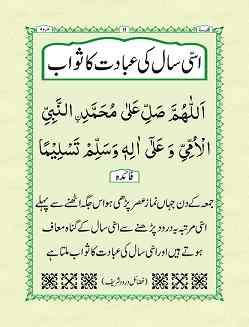 ۱۱
اسّی سال کی عبادت کا ثواب
اَللّٰهُمَّ صَلِّ عَلٰی مُحَمَّدِ نِ النَّبِيِّ
الْاُمِّيِّ وَ عَلٰٓی اٰلِهٖ وَسَلِّمْ تَسْلِيْمًا
فائدہ
جمعہ کے دن جہاں نماز عصر پڑھی ہو اس جگہ اٹھنے سے پہلے
اسّی مرتبہ یہ درود پڑھنے سے اسّی سال کے گناہ معاف
ہوتے ہیں اور اسی سال کی عبادت کا ثواب ملتا ہے
(فضائل درود شریف)